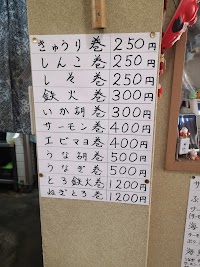 きゅうり巻 250円
しんこ巻 250円
しそ巻 250円
鉄火巻 300円
いか胡巻 300円
サーモン巻 400円
エビマヨ巻 400円
うな胡巻 500円
うなぎ巻 500円
とろ鉄火巻 1200円
ねぎとろ巻 1200円